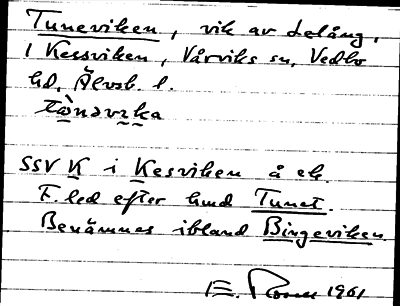 Tuneviken, vik av Lelång,
i Kessviken, Vårviks sn, Vedbo
hd, Älvsb. l.
tò̱nəvi̱ka
SSV K i Kesviken å ek.
F. led efter hmd Tunet.
Benämnes ibland Bingeviken.
E. 1961